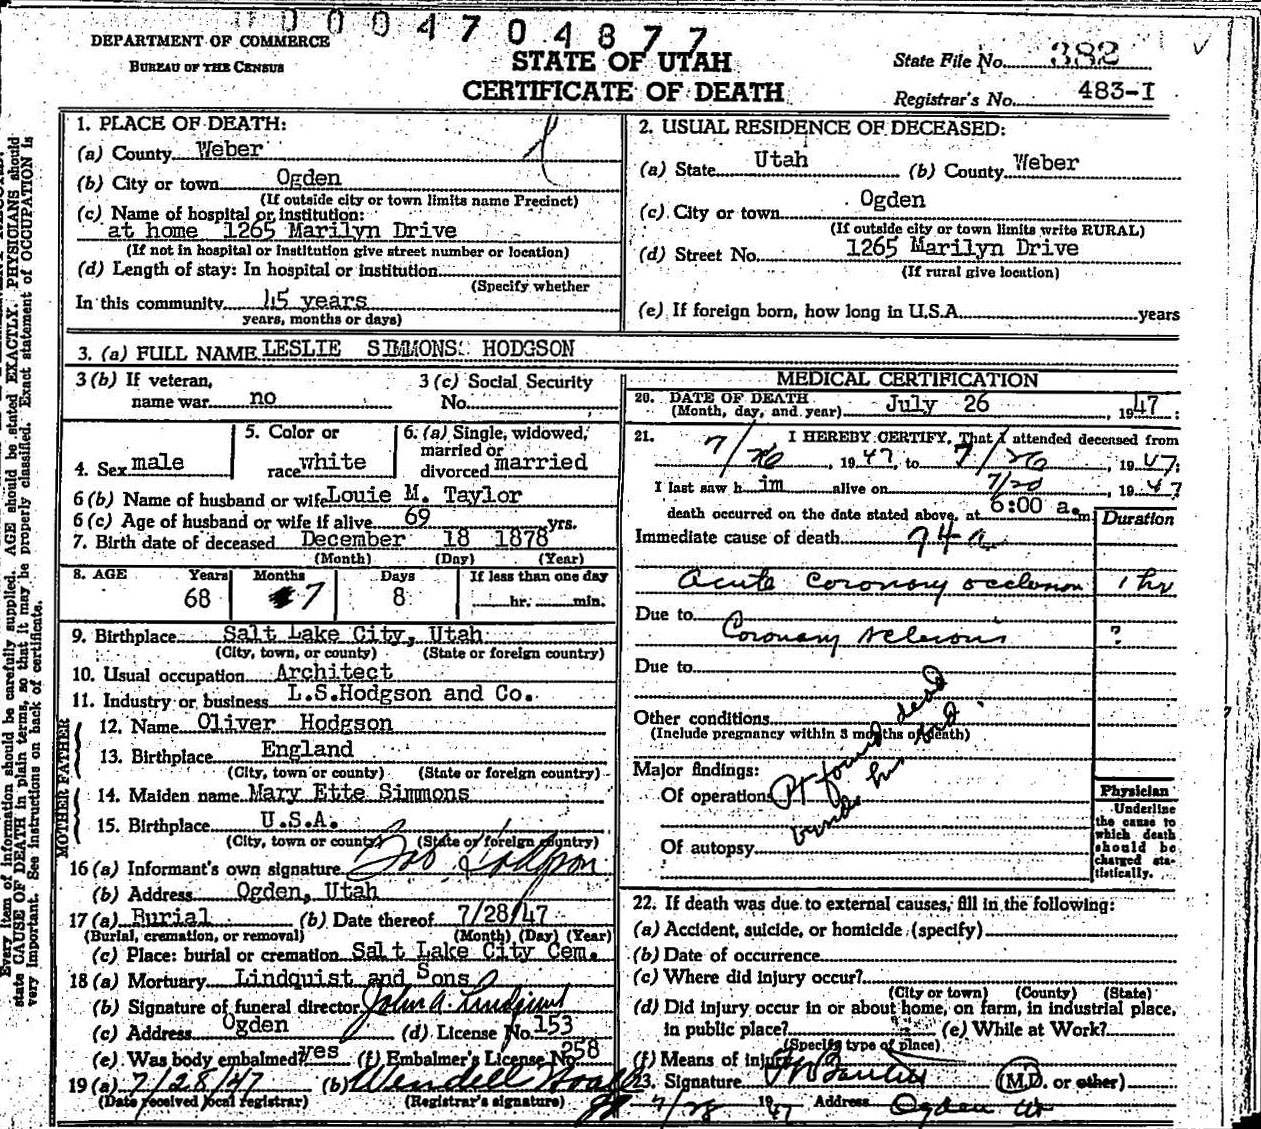 0004704877
DEPARTMENT OF COMMERCE
BUREAU OF THE CENSUS
STATE OF UTAH
CERTIFICATE OF DEATH
State File No. 382
Registrar's No. 483-I
Every item of information should be carefully supplied. AGE should be stated EXACTLY. PHYSICIANS should
state CAUSE OF DEATH in plain terms, so that it may be properly classified. Exact statement of OCCUPATION is
very important. See instructions on back of certificate.
1. PLACE OF DEATH:
(a) County Weber
(b) City or town Ogden
(If outside city or town limits name Precinct)
(c) Name of hospital or institution:
at home 1265 Marilyn Drive
(If not in hospital or institution give street number or location)
(d) Length of stay: In hospital or institution
(Specify whether
In this community 45 years
years, months or days)
2. USUAL RESIDENCE OF DECEASED:
(a) State Utah (b) County Weber
(c) City or town Ogden
(If outside city or town limits write RURAL)
(d) Street No. 1265 Marilyn Drive
(If rural give location)
(e) If foreign born, how long in U.S.A. years
3. (a) FULL NAME LESLIE SIMMONS HODGSON
3 (b) If veteran, 3 (c) Social Security
name war no No.
4. Sex male 5. Color or race white 6. (a) Single, widowed, married or divorced married
6 (b) Name of husband or wife Louie M. Taylor
6 (c) Age of husband or wife if alive 69 yrs.
7. Birth date of deceased December 18 1878
(Month) (Day) (Year)
8. AGE Years Months Days If less than one day
68 7 8 hr. min.
9. Birthplace Salt Lake City, Utah
(City, town, or county) (State or foreign country)
10. Usual occupation Architect
11. Industry or business L.S.Hodgson and Co.
FATHER
12. Name Oliver Hodgson
13. Birthplace England
(City, town or county) (State or foreign country)
MOTHER
14. Maiden name Mary Ette Simmons
15. Birthplace U.S.A.
(City, town or county) (State or foreign country)
16 (a) Informant's own signature Hodgson
(b) Address Ogden, Utah
17 (a) Burial (b) Date thereof 7/28/47
(Burial, cremation, or removal) (Month) (Day) (Year)
(c) Place: burial or cremation Salt Lake City Cem.
18 (a) Mortuary Lindquist and Sons
(b) Signature of funeral director John A. Lindquist
(c) Address Ogden (d) License No. 153
(e) Was body embalmed? yes (f) Embalmer's License No. 258
19 (a) 7/28/47 (b) Wendell
(Date received local registrar) (Registrar's signature)
MEDICAL CERTIFICATION
20. DATE OF DEATH
(Month, day, and year) July 26, 1947
21. I HEREBY CERTIFY, That I attended deceased from
7/26, 1947, to 7/26, 1947;
I last saw h im alive on 7/20, 1947
death occurred on the date stated above, at 6:00 a.m.
Duration
Immediate cause of death 94-a
Acute coronary occlusion 1 hr
Due to Coronary sclerosis ?
Due to
Other conditions
(Include pregnancy within 3 months of death)
Major findings:
Of operations
Of autopsy
Pt found dead
beside his bed.
Physician
Underline
the cause to
which death
should be
charged sta-
tistically.
22. If death was due to external causes, fill in the following:
(a) Accident, suicide, or homicide (specify)
(b) Date of occurrence
(c) Where did injury occur?
(City or town) (County) (State)
(d) Did injury occur in or about home, on farm, in industrial place,
in public place? (e) While at Work?
(Specify type of place)
(f) Means of injury
23. Signature (M.D. or other)
7/28 1947 Address Ogden Ut